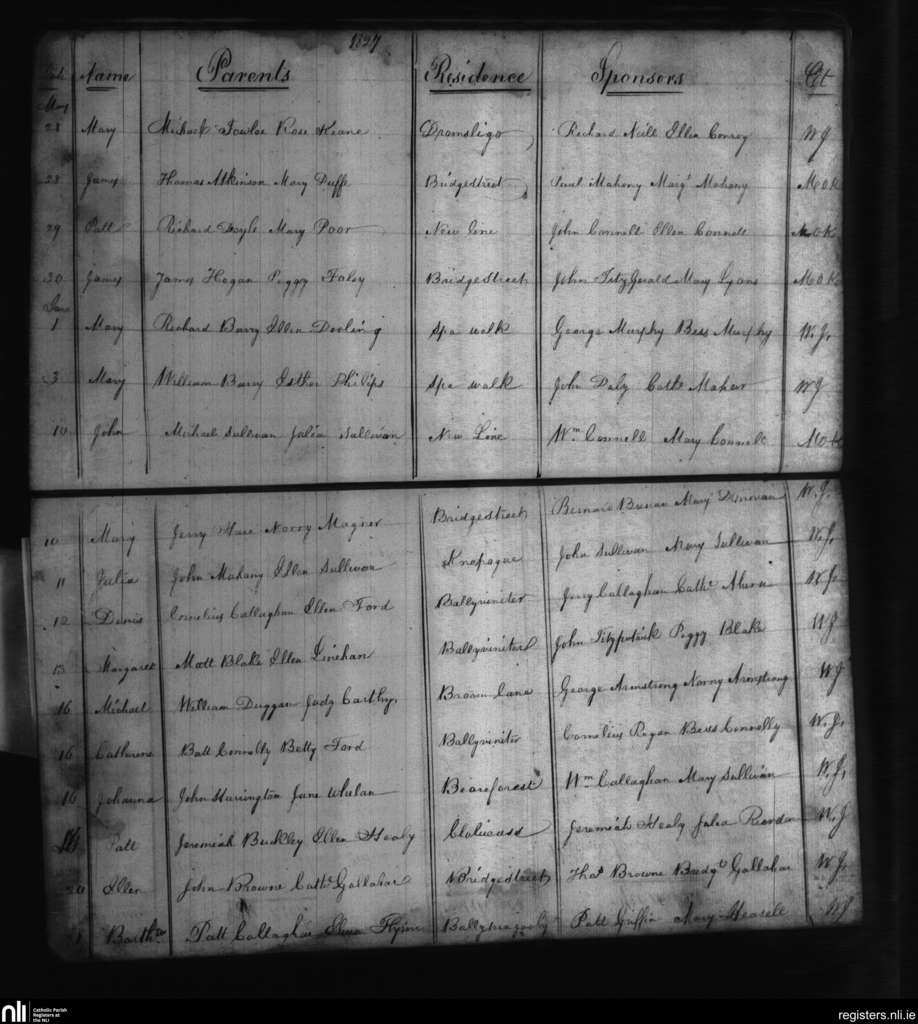 Name Parents Residence Sponsors
May
28 Mary Michael Rose Keane Dromsligo Richard Neill Ellen Conroy W J
28 James Thomas Atkinson Mary Duffe Bridgestreet Paul Mahony Margt Mahony M O K
29 Patt Richard Doyle Mary Poor New Line John Connell Ellen Connell M O K
30 James James Hogan Peggy Foley Bridge Street John FitzGerald Mary Lyons M O K
June
1 Mary Richard Barry Ellen Dooling Spa walk George Murphy Bess Murphy W. J.
3 Mary William Barry Esther Philips Spa walk John Daly Cathe Maher W J
10 John Michael Sullivan Julia Sullivan New Line Wm Connell Mary Connell
10 Mary Jerry Hare Norry Magner Bridgestreet Bernard Mary Donovan W. J.
11 Julia John Mahony Ellen Sullivan Knopogue John Sullivan Mary Sullivan W. J.
12 Denis Cornelius Callaghan Ellen Ford Ballyviniter Jerry Callaghan Cathe W J
13 Margaret Matt Blake Ellen Linehan Ballyviniter John Fitzpatrick Peggy Blake W J
16 Michael William Duggan Judy Carthy Broom Lane George Armstrong Norry Armstrong W J
16 Catherine Batt Connolly Betty Ford Ballyviniter Cornelius Regan Bess Connolly W. J.
16 Johanna John Harrington Jane Whelan Beareforest Wm Callaghan Mary Sullivan W. J.
Patt Jeremiah Buckley Ellen Healy Jeremiah Healy Julia Riordan W. J
20 Ellen John Browne Cathe Gallahar Bridgestreet Thos Browne Bridgt Gallahar W J.
21 Barthw Patt Callaghan Flynn Patt Griffin Mary W J
nli Catholic Parish
Registers at
the NLI
registers.nli.ie